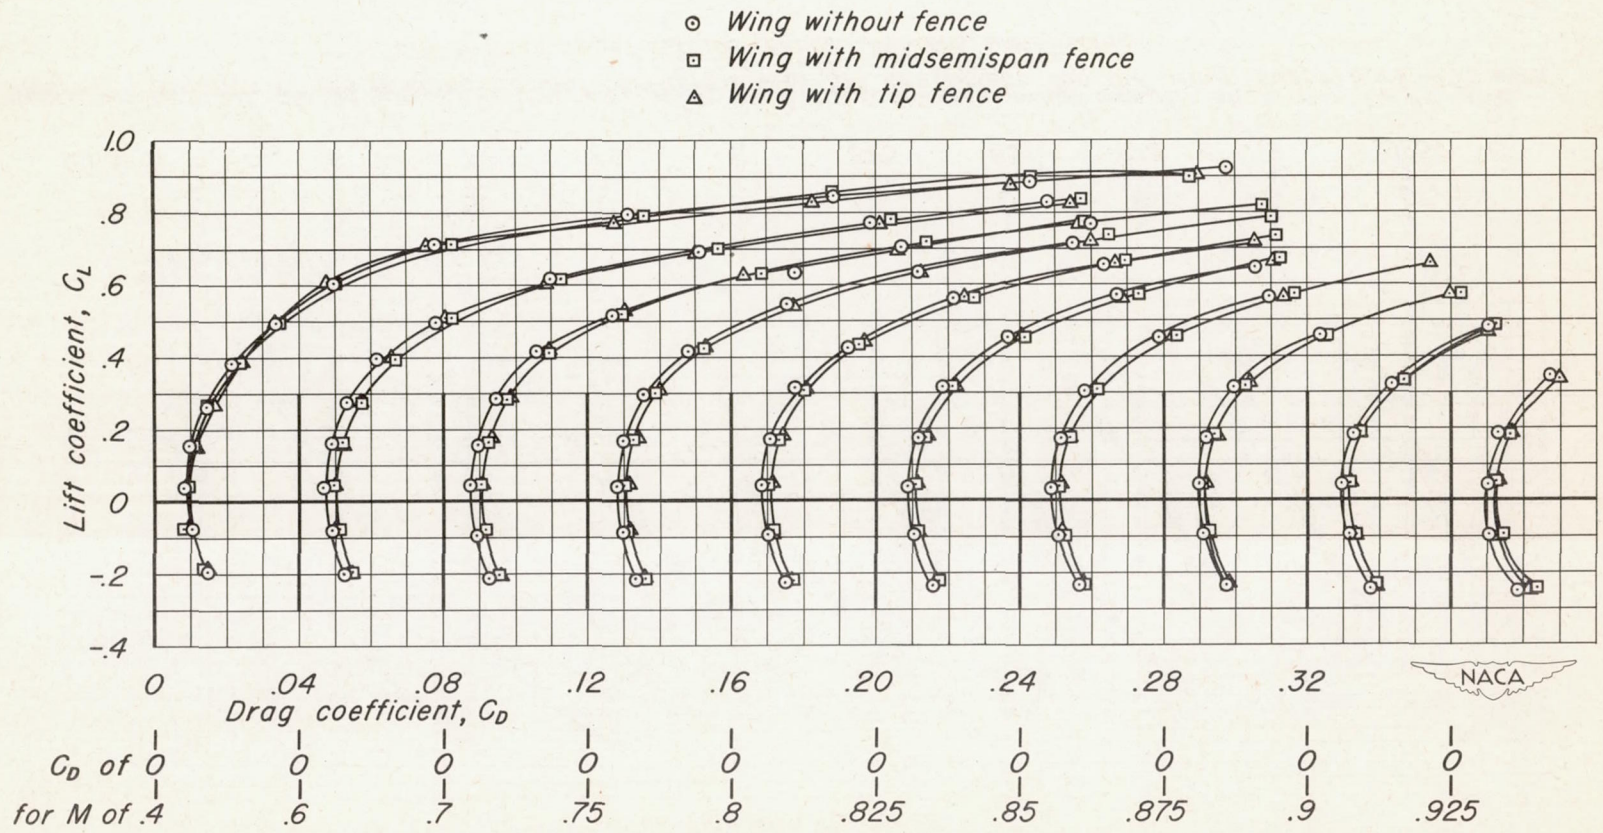 Wing without fence
Wing with midsemispan fence
Wing with tip fence
1.0
.8
.6
.4
.2
0
-.2
-.4
Lift coefficient, CL
0 .04 .08 .12 .16 .20 .24 .28 .32
Drag coefficient, CD
NACA
CD of 0 0 0 0 0 0 0 0 0 0
for M of .4 .6 .7 .75 .8 .825 .85 .875 .9 .925